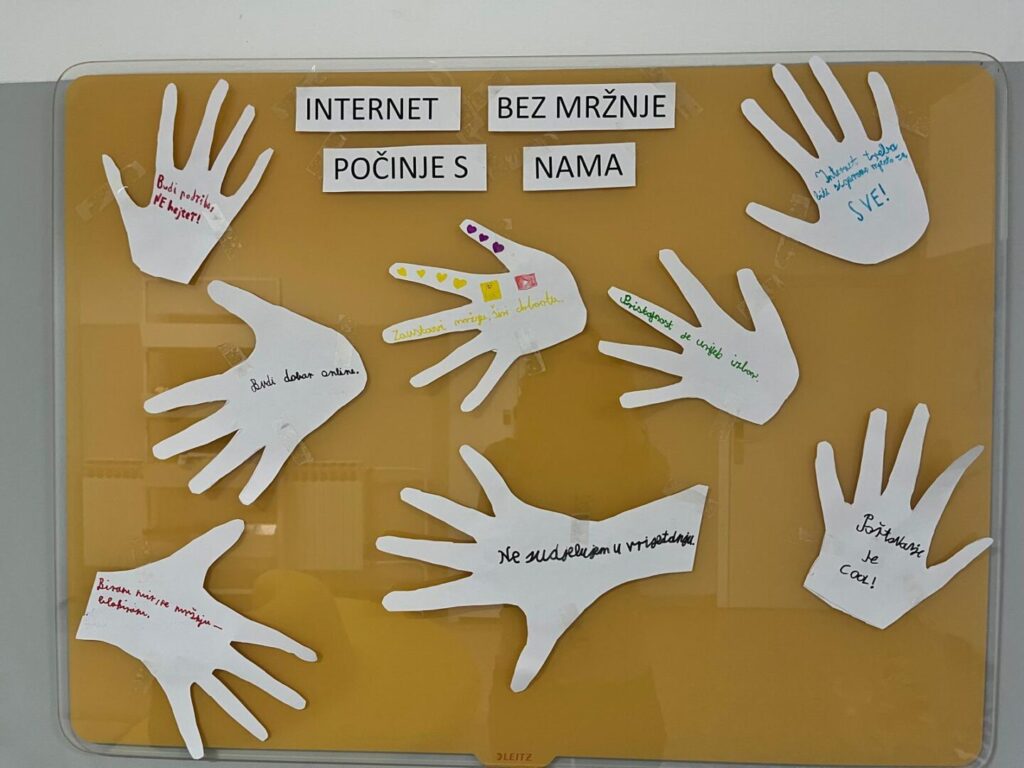 INTERNET BEZ MRŽNJE
POČINJE S NAMA
Budi podrška
NE hejter!
Internet treba
biti sigurno mjesto za
SVE!
Zaustavi mržnju, širi dobrotu.
Pristojnost je uvijek izbor.
Budi dobar online.
Ne sudjelujem u vrijeđanju.
Poštovanje
je
COOL!
Biram mir, ne mržnju –
blokiram.
LEITZ